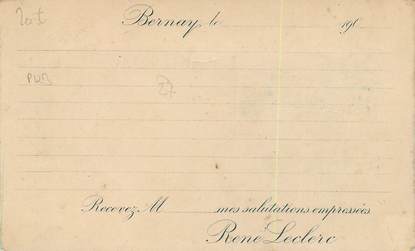 Bernay, le 190
PUB
27
Recevez M mes salutations empressées
René Leclerc